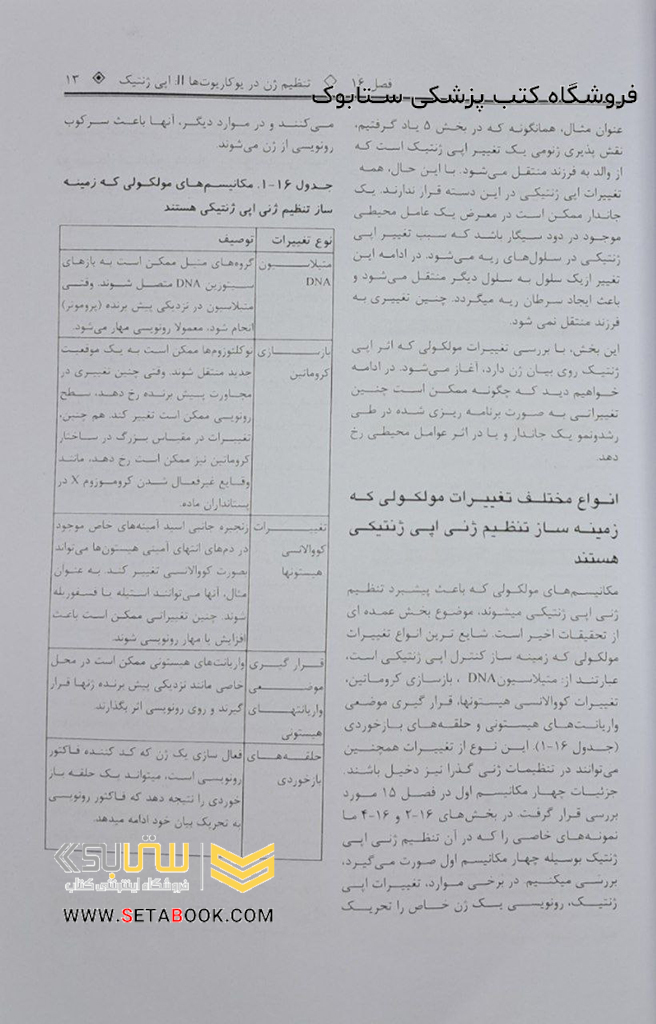 فصل ۱۶ ◇ تنظیم ژن در یوکاریوت‌ها II: اپی ژنتیک ◈ ۱۳
فروشگاه کتب پزشکی ستابوک
عنوان مثال، همانگونه که در بخش ۵ یاد گرفتیم،
نقش پذیری ژنومی یک تغییر اپی ژنتیک است که
از والد به فرزند منتقل می‌شود. با این حال، همه
تغییرات اپی ژنتیکی در این دسته قرار ندارند. یک
جاندار ممکن است در معرض یک عامل محیطی
موجود در دود سیگار باشد که سبب تغییر اپی
ژنتیکی در سلول‌های ریه می‌شود. در ادامه این
تغییر ازیک سلول به سلول دیگر منتقل می‌شود و
باعث ایجاد سرطان ریه میگردد. چنین تغییری به
فرزند منتقل نمی شود.
این بخش، با بررسی تغییرات مولکولی که اثر اپی
ژنتیک روی بیان ژن دارد، آغاز می‌شود. در ادامه
خواهیم دید که چگونه ممکن است چنین
تغییراتی به صورت برنامه ریزی شده در طی
رشدونمو یک جاندار و یا در اثر عوامل محیطی رخ
دهد.
انواع مختلف تغییرات مولکولی که
زمینه ساز تنظیم ژنی اپی ژنتیکی
هستند
مکانیسم‌های مولکولی که باعث پیشبرد تنظیم
ژنی اپی ژنتیکی میشوند، موضوع بخش عمده ای
از تحقیقات اخیر است. شایع ترین انواع تغییرات
مولکولی که زمینه ساز کنترل اپی ژنتیکی است،
عبارتند از: متیلاسیونDNA ، بازسازی کروماتین،
تغییرات کووالانتی هیستونها، قرار گیری موضعی
واریانت‌های هیستونی و حلقه‌های بازخوردی
(جدول ۱۶-۱). این نوع از تغییرات همچنین
می‌توانند در تنظیمات ژنی گذرا نیز دخیل باشند.
جزئیات چهار مکانیسم اول در فصل ۱۵ مورد
بررسی قرار گرفت. در بخش‌های ۱۶-۲ و ۱۶-۴ ما
نمونه‌های خاصی را که در آن تنظیم ژنی اپی
ژنتیک بوسیله چهار مکانیسم اول صورت می‌گیرد،
بررسی میکنیم. در برخی موارد، تغییرات اپی
ژنتیک، رونویسی یک ژن خاص را تحریک
می‌کنند و در موارد دیگر، آنها باعث سرکوب
رونویسی از ژن می‌شوند.
جدول ۱۶-۱. مکانیسم‌های مولکولی که زمینه
ساز تنظیم ژنی اپی ژنتیکی هستند
نوع تغییرات توصیف
متیلاسیون گروه‌های متیل ممکن است به بازهای
DNA سیتوزین DNA متصل شوند. وقتی
متیلاسیون در نزدیکی پیش برنده (پروموتر)
انجام شود، معمولا رونویسی مهار می‌شود.
بازسازی نوکلئوزوم‌ها ممکن است به یک موقعیت
کروماتین جدید منتقل شوند. وقتی چنین تغییری در
مجاورت پیش برنده رخ دهد، سطح
رونویسی ممکن است تغییر کند. هم چنین،
تغییرات در مقیاس بزرگ در ساختار
کروماتین نیز ممکن است رخ دهد، مانند
وقایع غیرفعال شدن کروموزوم X در
پستانداران ماده.
تغییرات زنجیره جانبی اسید آمینه‌های خاص موجود
کووالانتی در دم‌های انتهای آمینی هیستون‌ها می‌تواند
هیستونها بصورت کووالانسی تغییر کند. به عنوان
مثال، آنها می‌توانند استیله یا فسفوریله
شوند. چنین تغییراتی ممکن است باعث
افزایش یا مهار رونویسی شوند.
قرار گیری واریانت‌های هیستونی ممکن است در محل
موضعی خاصی مانند نزدیکی پیش برنده ژنها قرار
واریانتهای گیرند و روی رونویسی اثر بگذارند.
هیستونی
حلقه‌های فعال سازی یک ژن که کد کننده فاکتور
بازخوردی رونویسی است، میتواند یک حلقه باز
خوردی را نتیجه دهد که فاکتور رونویسی
به تحریک بیان خود ادامه میدهد.
ستابوک
فروشگاه اینترنتی کتاب
WWW.SETABOOK.COM